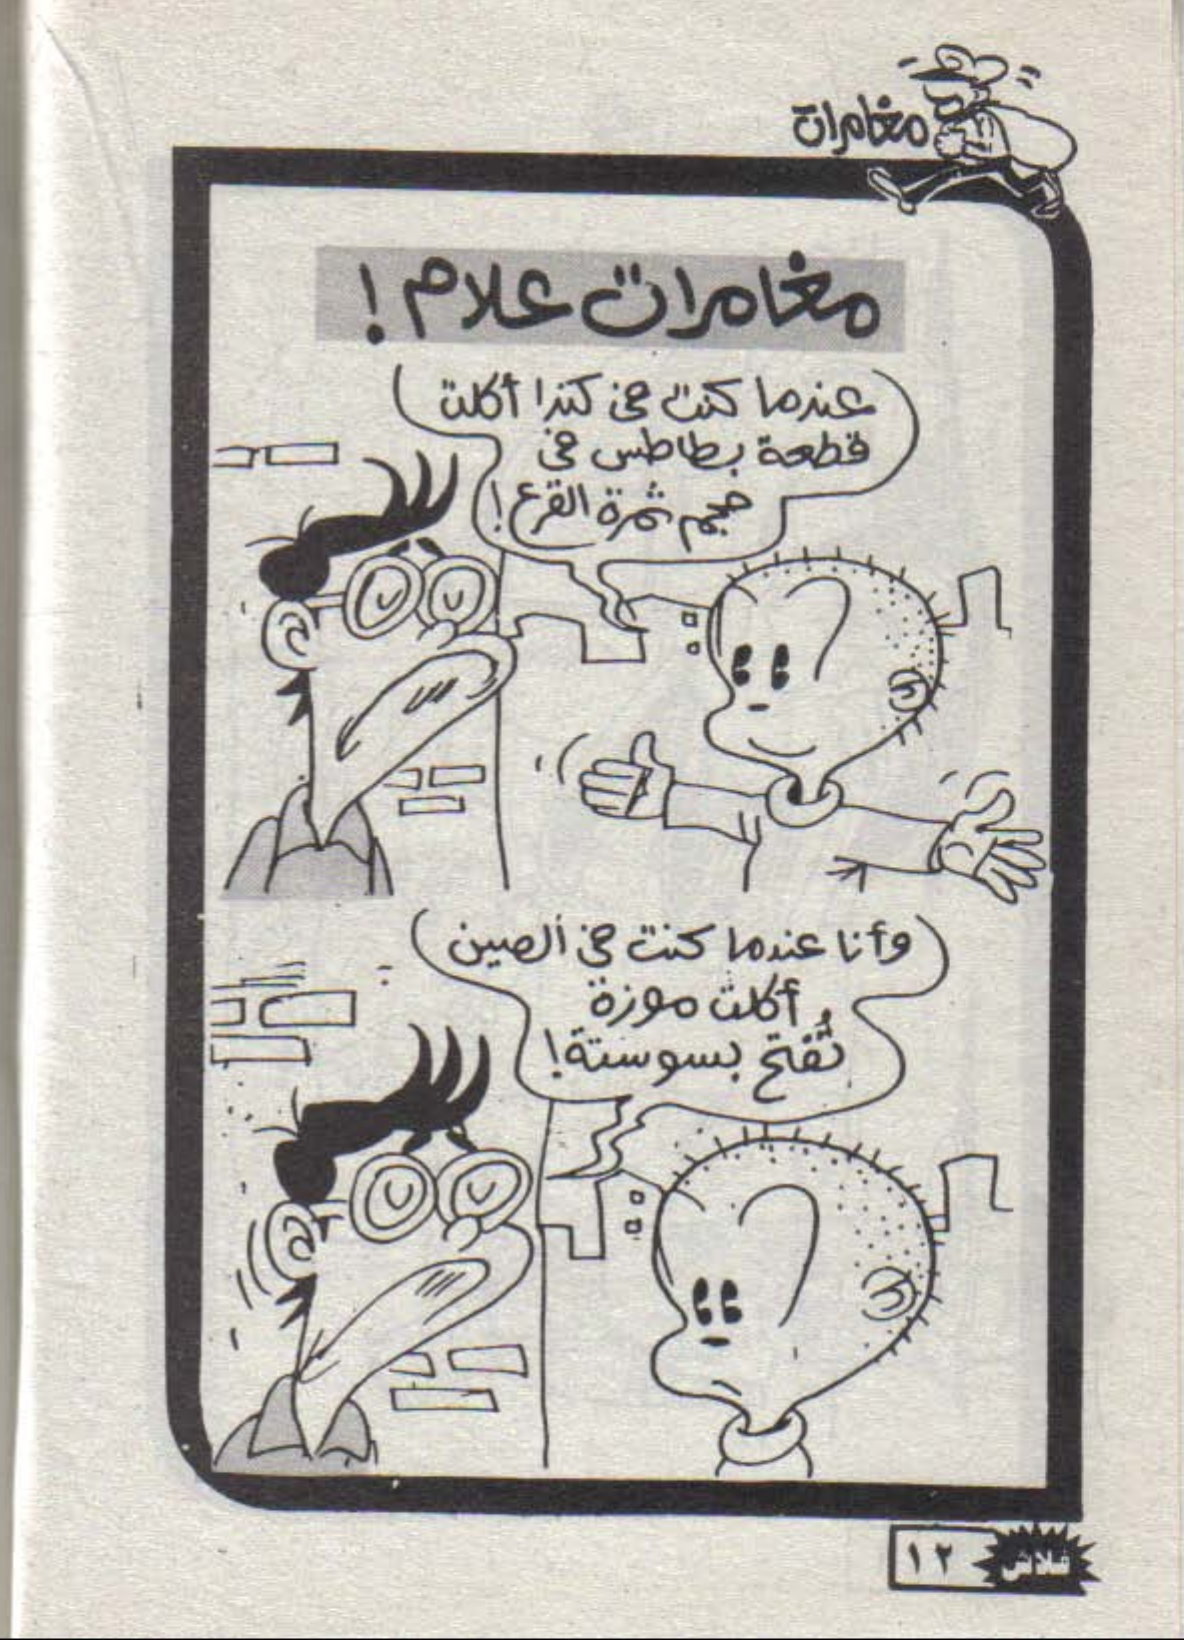 مغامرات
مغامرات علام!
عندما كنت في كندا أكلت
قطعة بطاطس في
حجم ثمرة القرع!
وأنا عندما كنت في الصين
أكلت موزة
تُفتح بسوستة!
١٢ فلاش